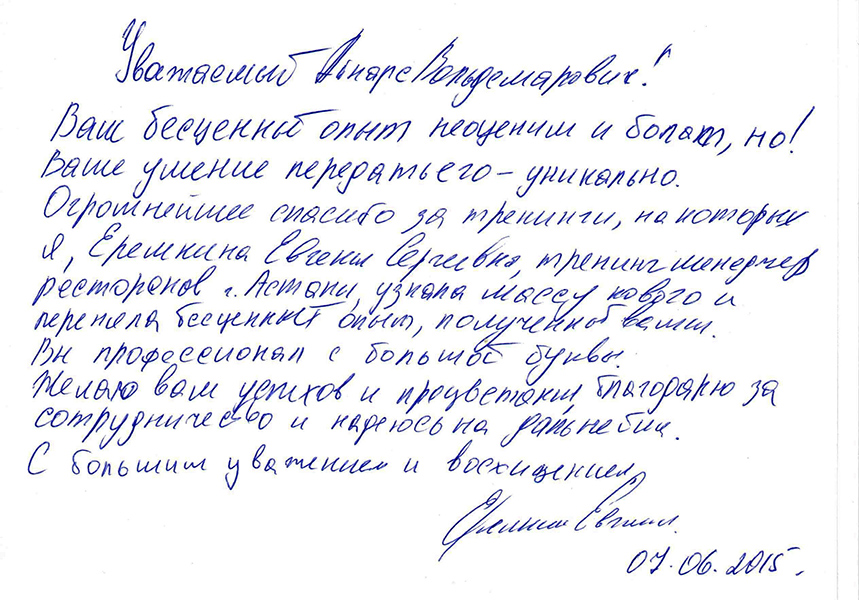 Уважаемый Айнарс Вольдемарович!
Ваш бесценный опыт неоценим и богат, но!
Ваше умение передать его – уникально.
Огромнейшее спасибо за тренинги, на которых
я, Еремкина Евгения Сергеевна, тренинг менеджер
ресторанов г. Астаны, узнала массу нового и
переняла бесценный опыт, полученный вами.
Вы профессионал с большой буквы.
Желаю вам успехов и процветания, благодарю за
сотрудничество и надеюсь на дальнейшее.
С большим уважением и восхищением,
Евгения.
07.06.2015.